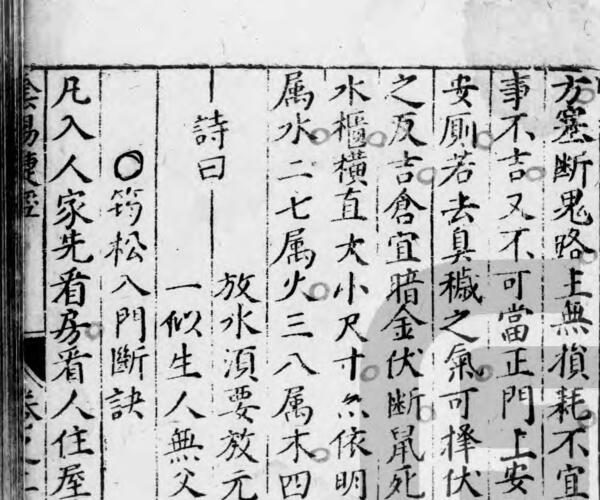 方塞断鬼路主無損耗不宜
事不吉又不可當正門上安
安厠若去臭穢之氣可擇伏
之反吉倉宜暗金伏断鼠死
水櫃橫直大小尺寸亦依明
属水二七属火三八属木四
詩曰
放水湏要放元
一似生人無父
〇筠松入門斷訣
凡入人家先看房看人住屋